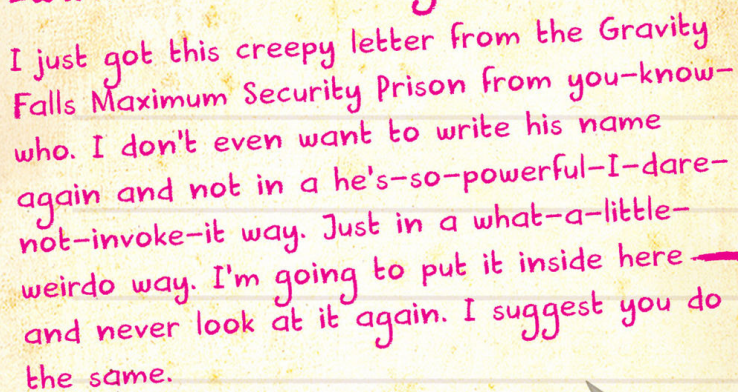 I just got this creepy letter from the Gravity
Falls Maximum Security Prison from you-know-
who. I don't even want to write his name
again and not in a he's-so-powerful-I-dare-
not-invoke-it way. Just in a what-a-little-
weirdo way. I'm going to put it inside here
and never look at it again. I suggest you do
the same.